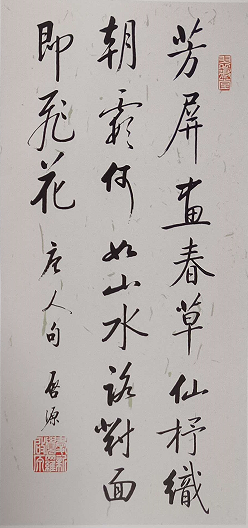 芳屏画春草仙杼織
朝霞何如山水路對面
即飛花 唐人句 啟源